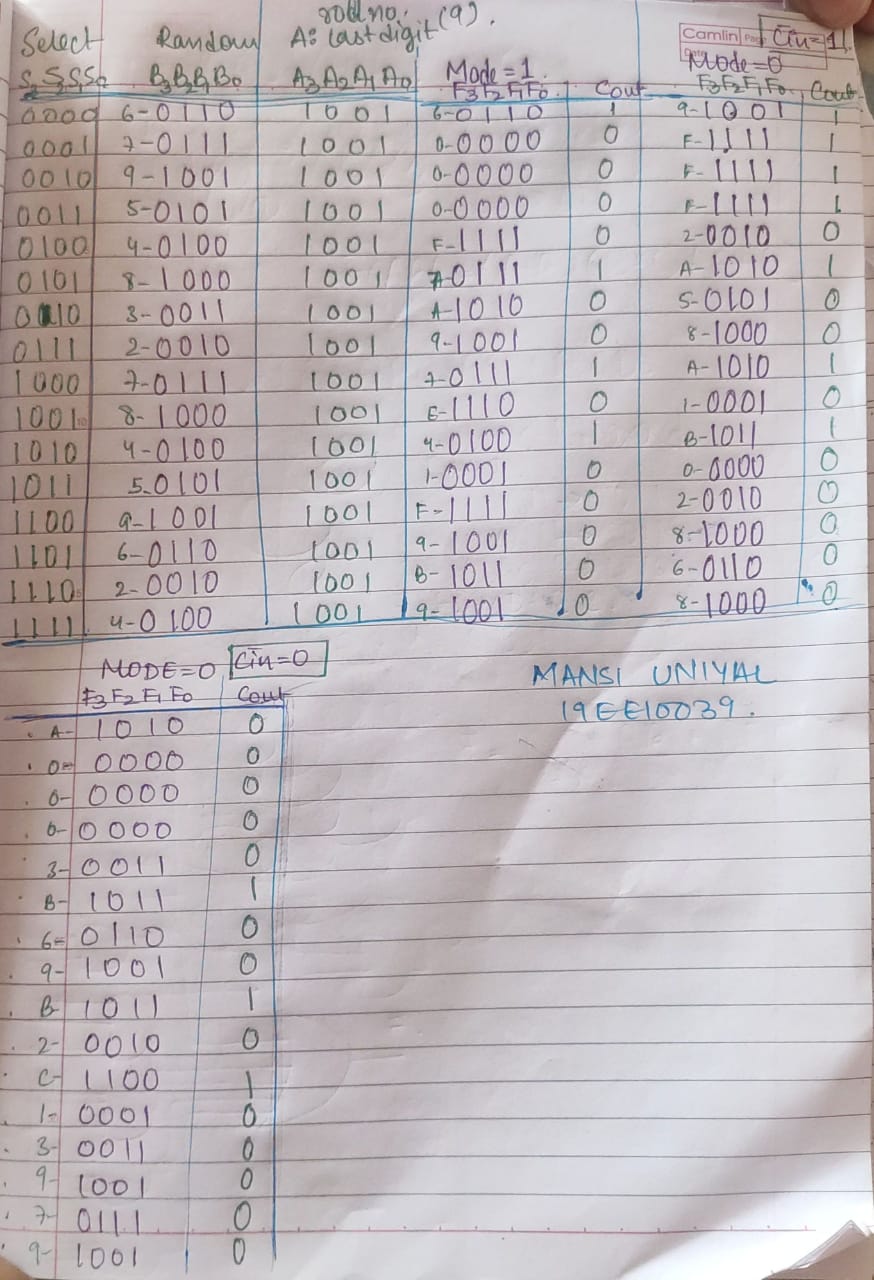 roll no.
Select Random A: Last digit (9). Camlin Cin=1
Mode=1 Mode=0
S3S2S1S0 B3B2B1B0 A3A2A1A0 F3F2F1F0 Cout F3F2F1F0 Cout
0000 6-0110 1001 6-0110 1 9-1001 1
0001 7-0111 1001 0-0000 0 F-1111 1
0010 9-1001 1001 0-0000 0 F-1111 1
0011 5-0101 1001 0-0000 0 F-1111 1
0100 4-0100 1001 F-1111 0 2-0010 0
0101 8-1000 1001 7-0111 1 A-1010 1
0110 3-0011 1001 A-1010 0 5-0101 0
0111 2-0010 1001 9-1001 0 8-1000 0
1000 7-0111 1001 7-0111 1 A-1010 1
1001 8-1000 1001 E-1110 0 1-0001 0
1010 4-0100 1001 4-0100 1 B-1011 1
1011 5-0101 1001 1-0001 0 0-0000 0
1100 9-1001 1001 F-1111 0 2-0010 0
1101 6-0110 1001 9-1001 0 8-1000 0
1110 2-0010 1001 B-1011 0 6-0110 0
1111 4-0100 1001 9-1001 0 8-1000 0
MODE=0 Cin=0
F3F2F1F0 Cout
A-1010 0
0-0000 0
0-0000 0
0-0000 0
3-0011 0
B-1011 1
6-0110 0
9-1001 0
B-1011 1
2-0010 0
C-1100 1
1-0001 0
3-0011 0
9-1001 0
7-0111 0
9-1001 0
MANSI UNIYAL
19EE10039.